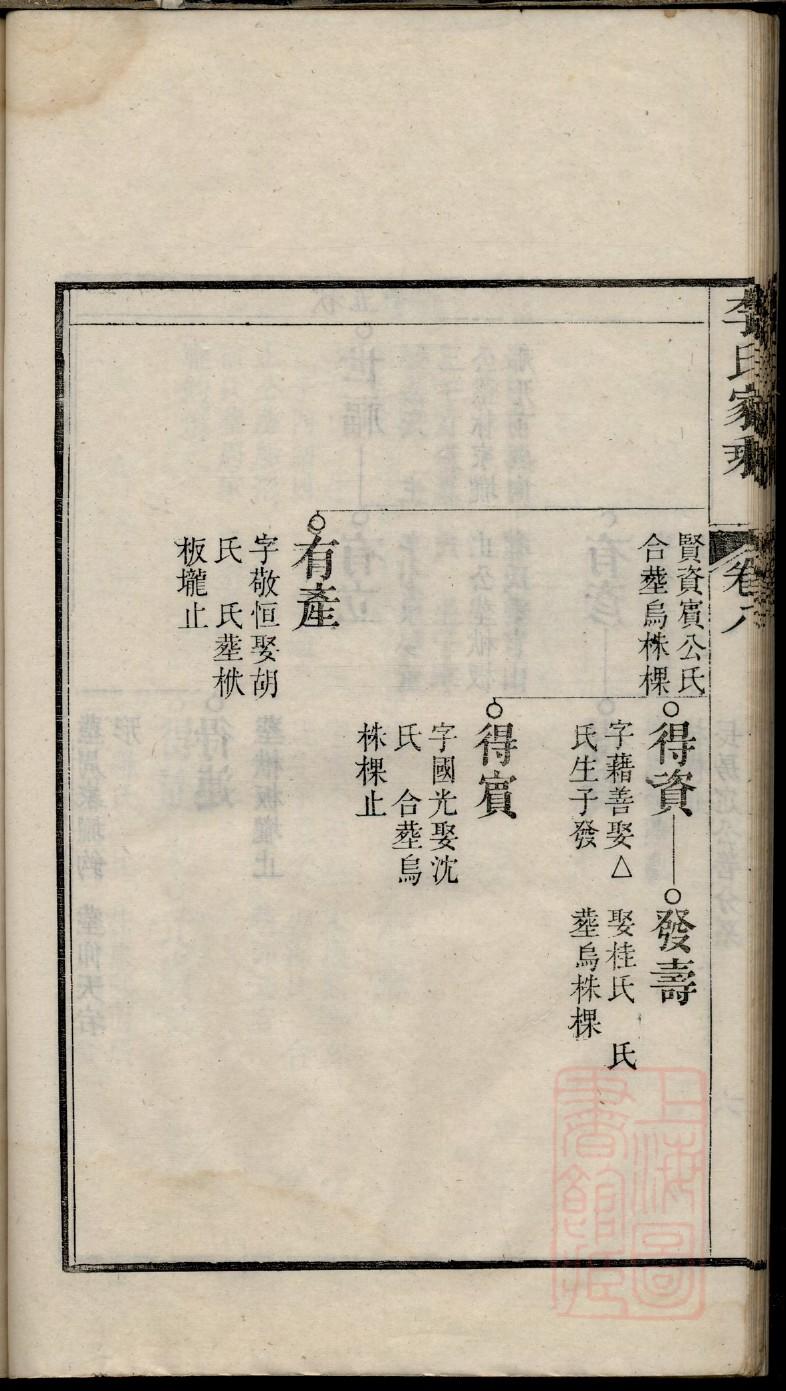 李氏家乘
卷六
賢資賔公氏
合塟烏株棵
得資
字藉善娶△
氏生子發
發壽
娶桂氏　氏
塟烏株棵
得賔
字國光娶沈
氏　合塟烏
株棵止
有產
字敬恒娶胡
氏　氏塟栿
板壠止
上海圖
書館藏